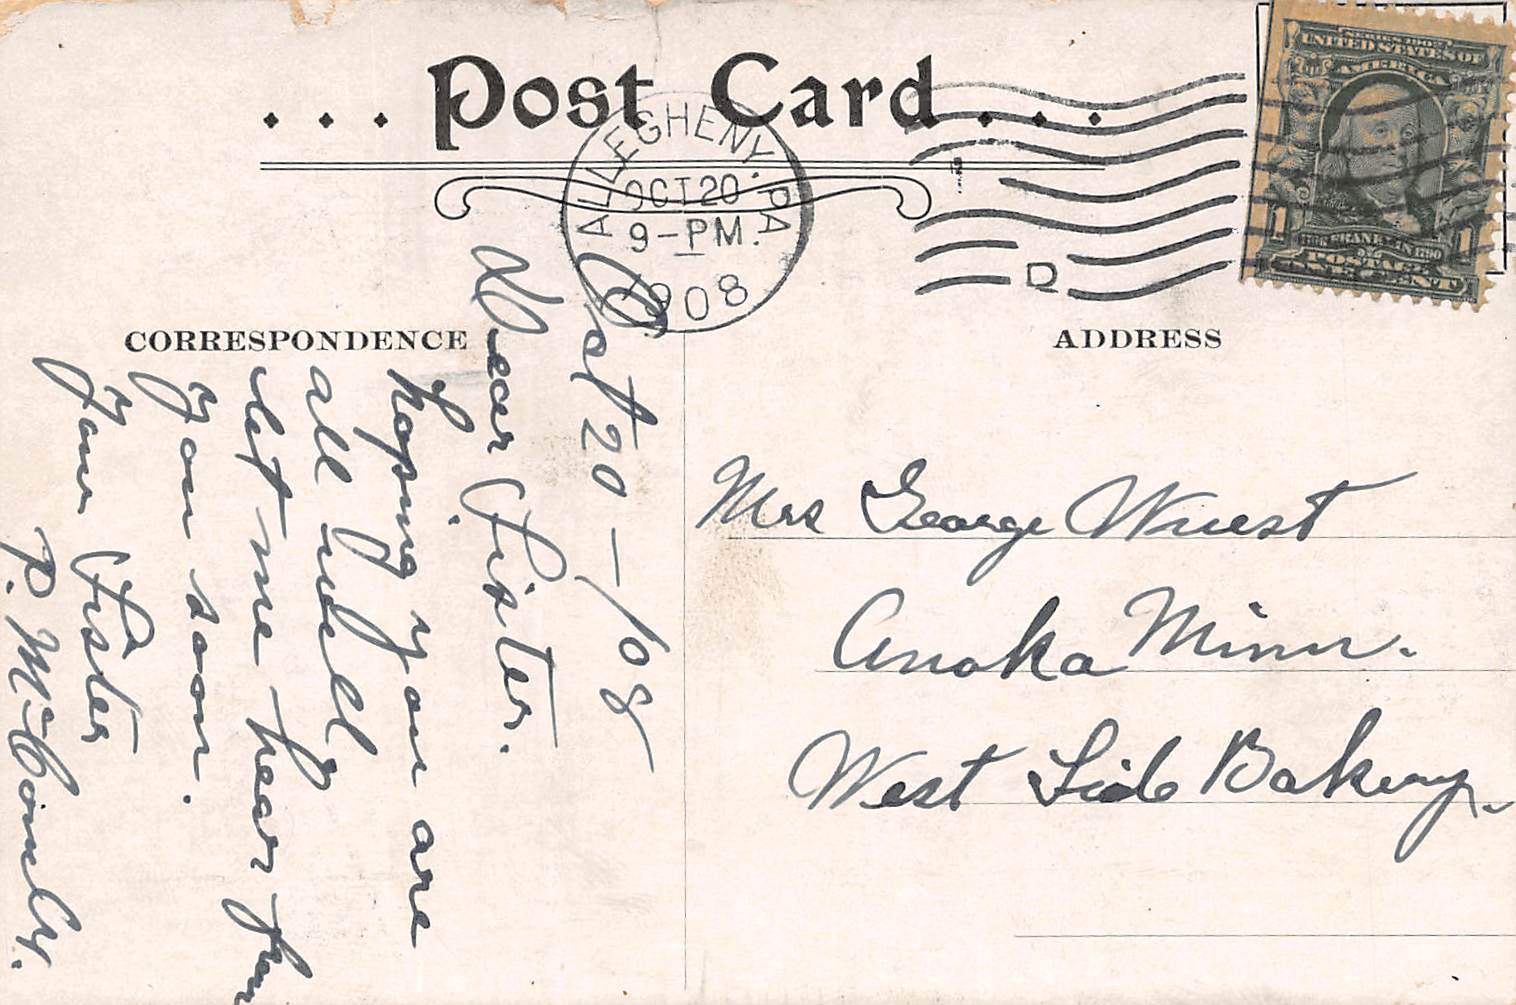 ... Post Card ...
ALLEGHENY, PA
OCT 20
9-PM.
1908
D
SERIES 1902
UNITED STATES OF
AMERICA
1 1
POSTAGE
ONE CENT
CORRESPONDENCE
ADDRESS
Oct 20 - / 08
Dear Sister.
hoping you are
all well
let me hear from
you soon.
your Sister
P. McComb.
Mrs George Wuest
Anoka Minn.
West Side Bakery.